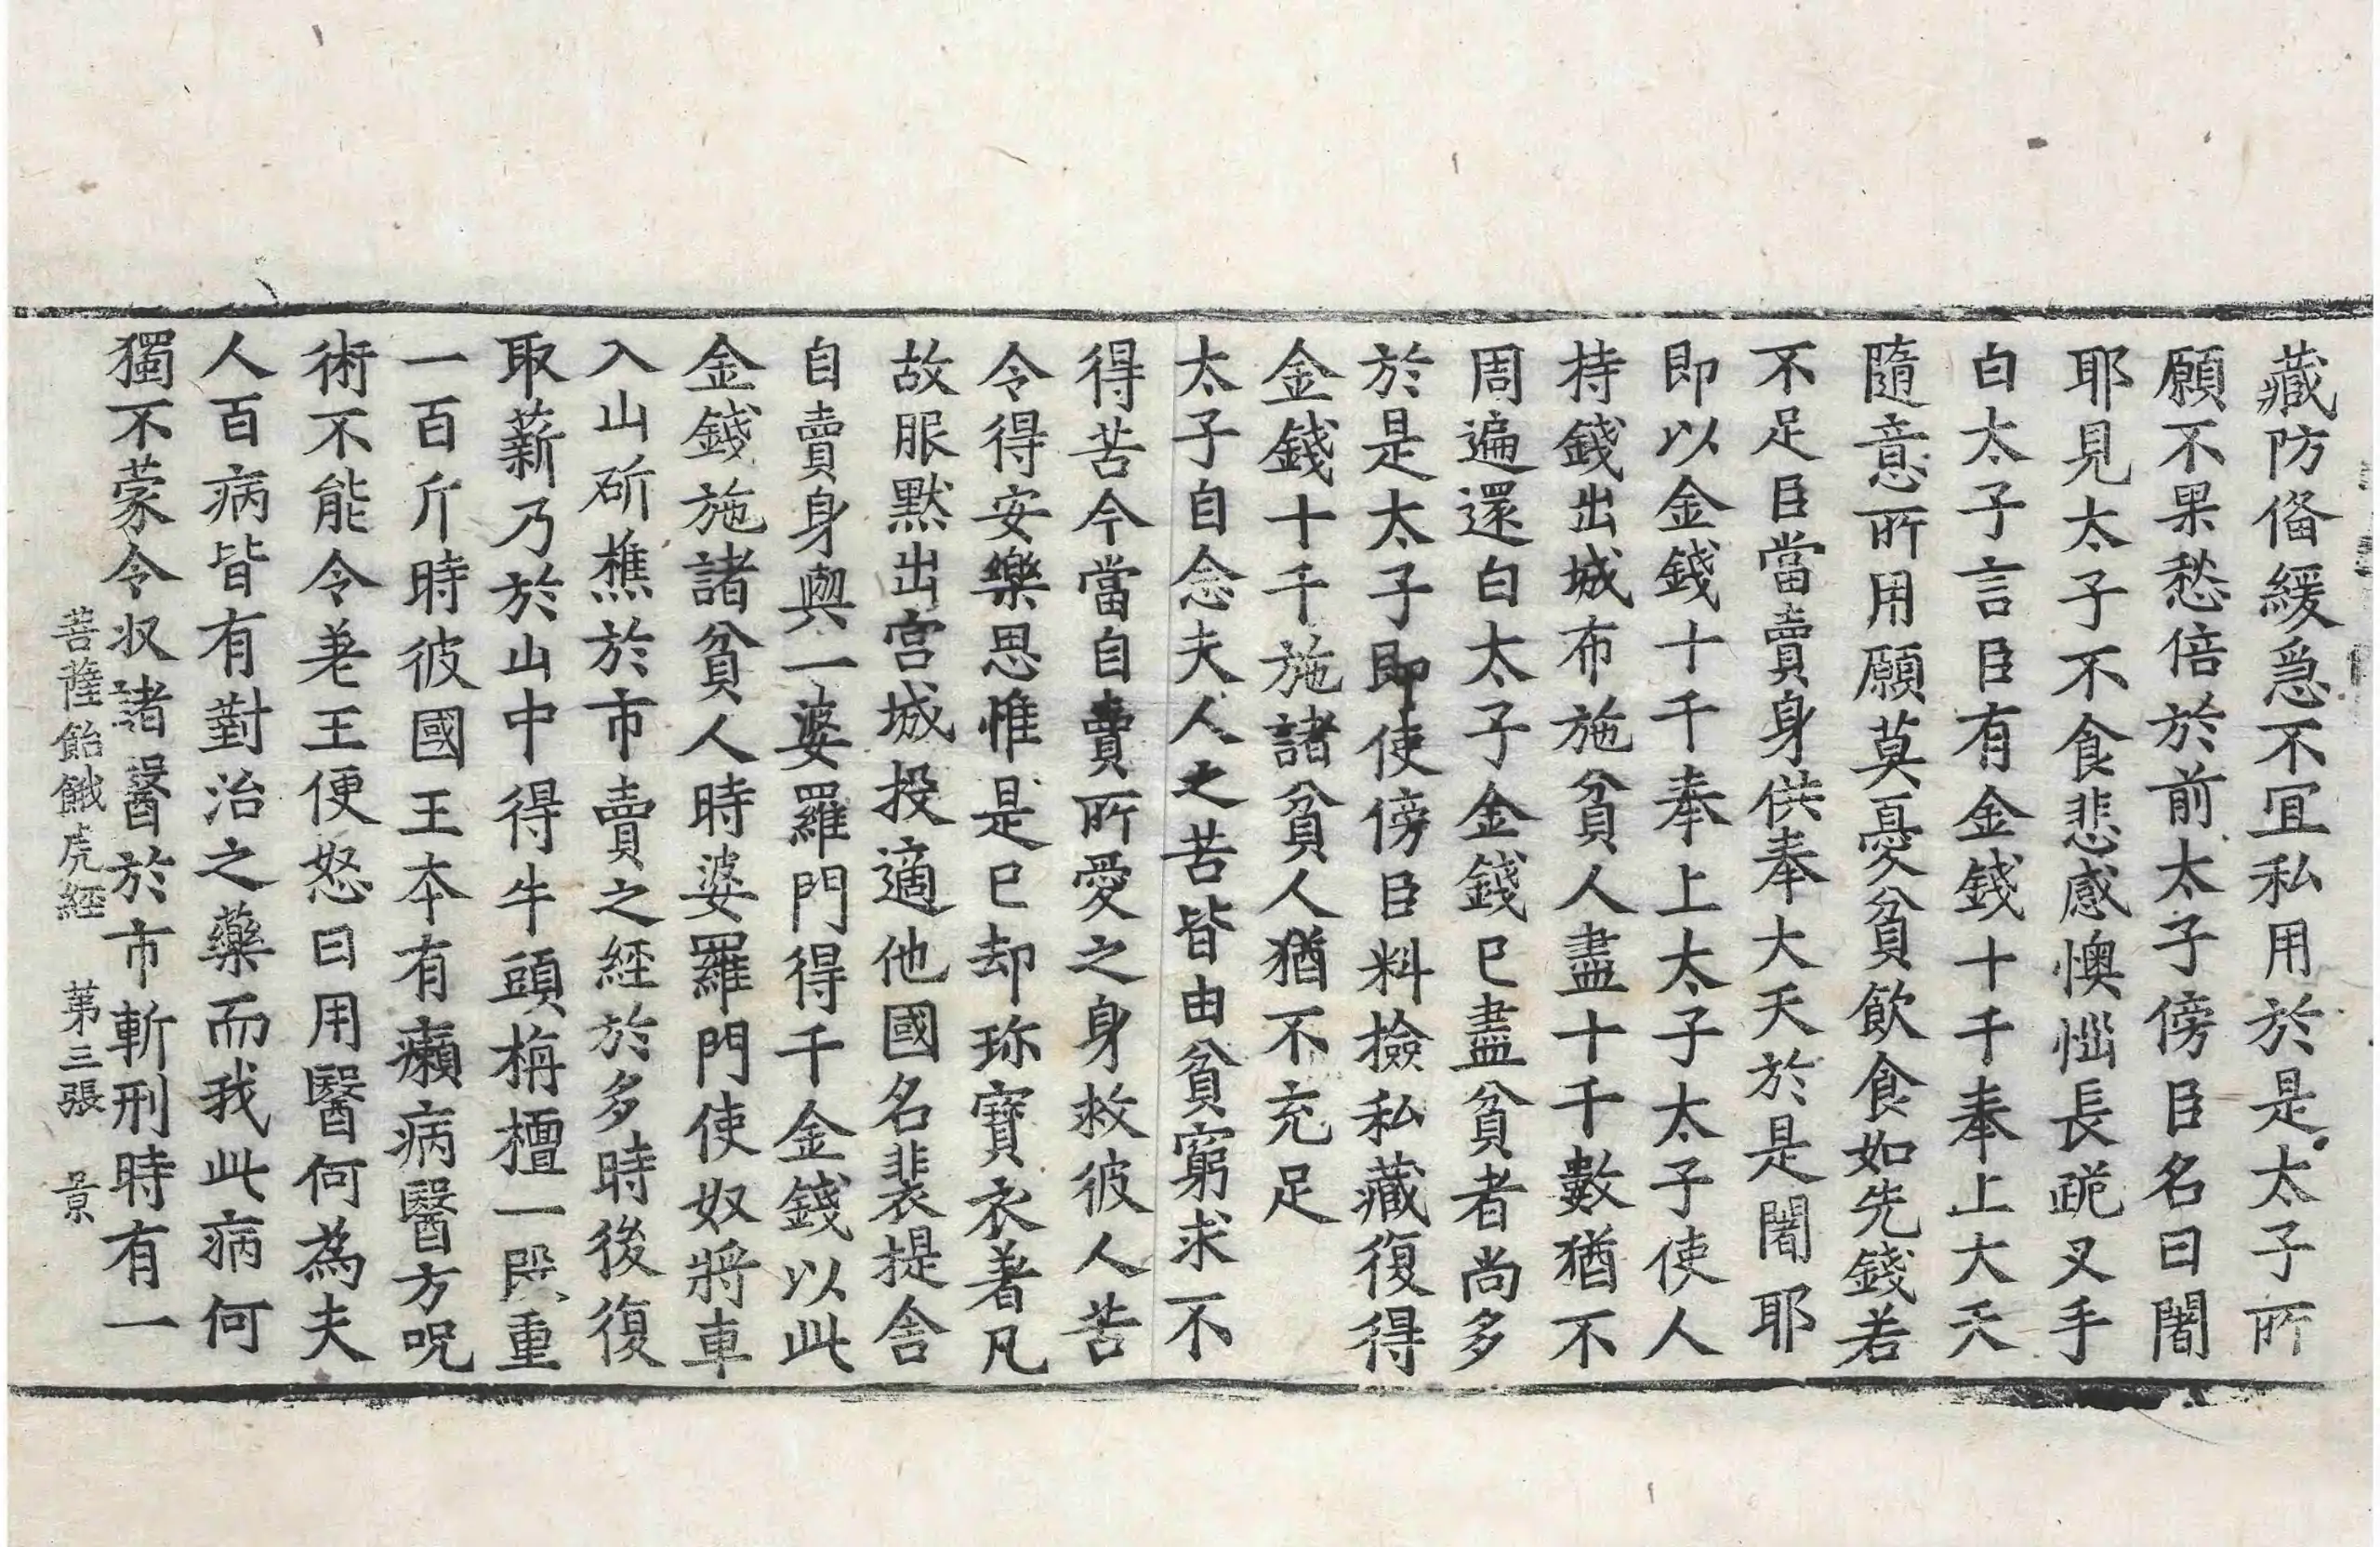 藏防俻緩急不宜私用於是太子所
願不果愁倍於前太子傍臣名曰闍
耶見太子不食悲感懊惱長跪叉手
白太子言臣有金錢十千奉上大天
隨意所用願莫憂貧飲食如先錢若
不足臣當賣身供奉大天於是闍耶
即以金錢十千奉上太子太子使人
持錢出城布施貧人盡十千數猶不
周遍還白太子金錢已盡貧者尚多
於是太子即使傍臣料撿私藏復得
金錢十千施諸貧人猶不充足
太子自念夫人之苦皆由貧窮求不
得苦今當自賣所愛之身救彼人苦
令得安樂思惟是已却珎寶衣著凡
故服默出宫城投適他國名裴提舍
自賣身與一婆羅門得千金錢以此
金錢施諸貧人時婆羅門使奴將車
入山斫樵於市賣之經於多時後復
取薪乃於山中得牛頭栴檀一段重
一百斤時彼國王本有癩病醫方呪
術不能令差王便怒曰用醫何為夫
人百病皆有對治之藥而我此病何
獨不蒙令收諸醫於市斬刑時有一
菩薩飴餓虎經 第三張 景